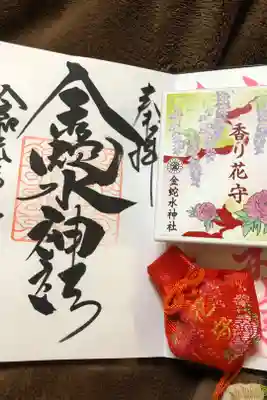 奉拝
金蛇水神社
香り花守
金蛇水神社